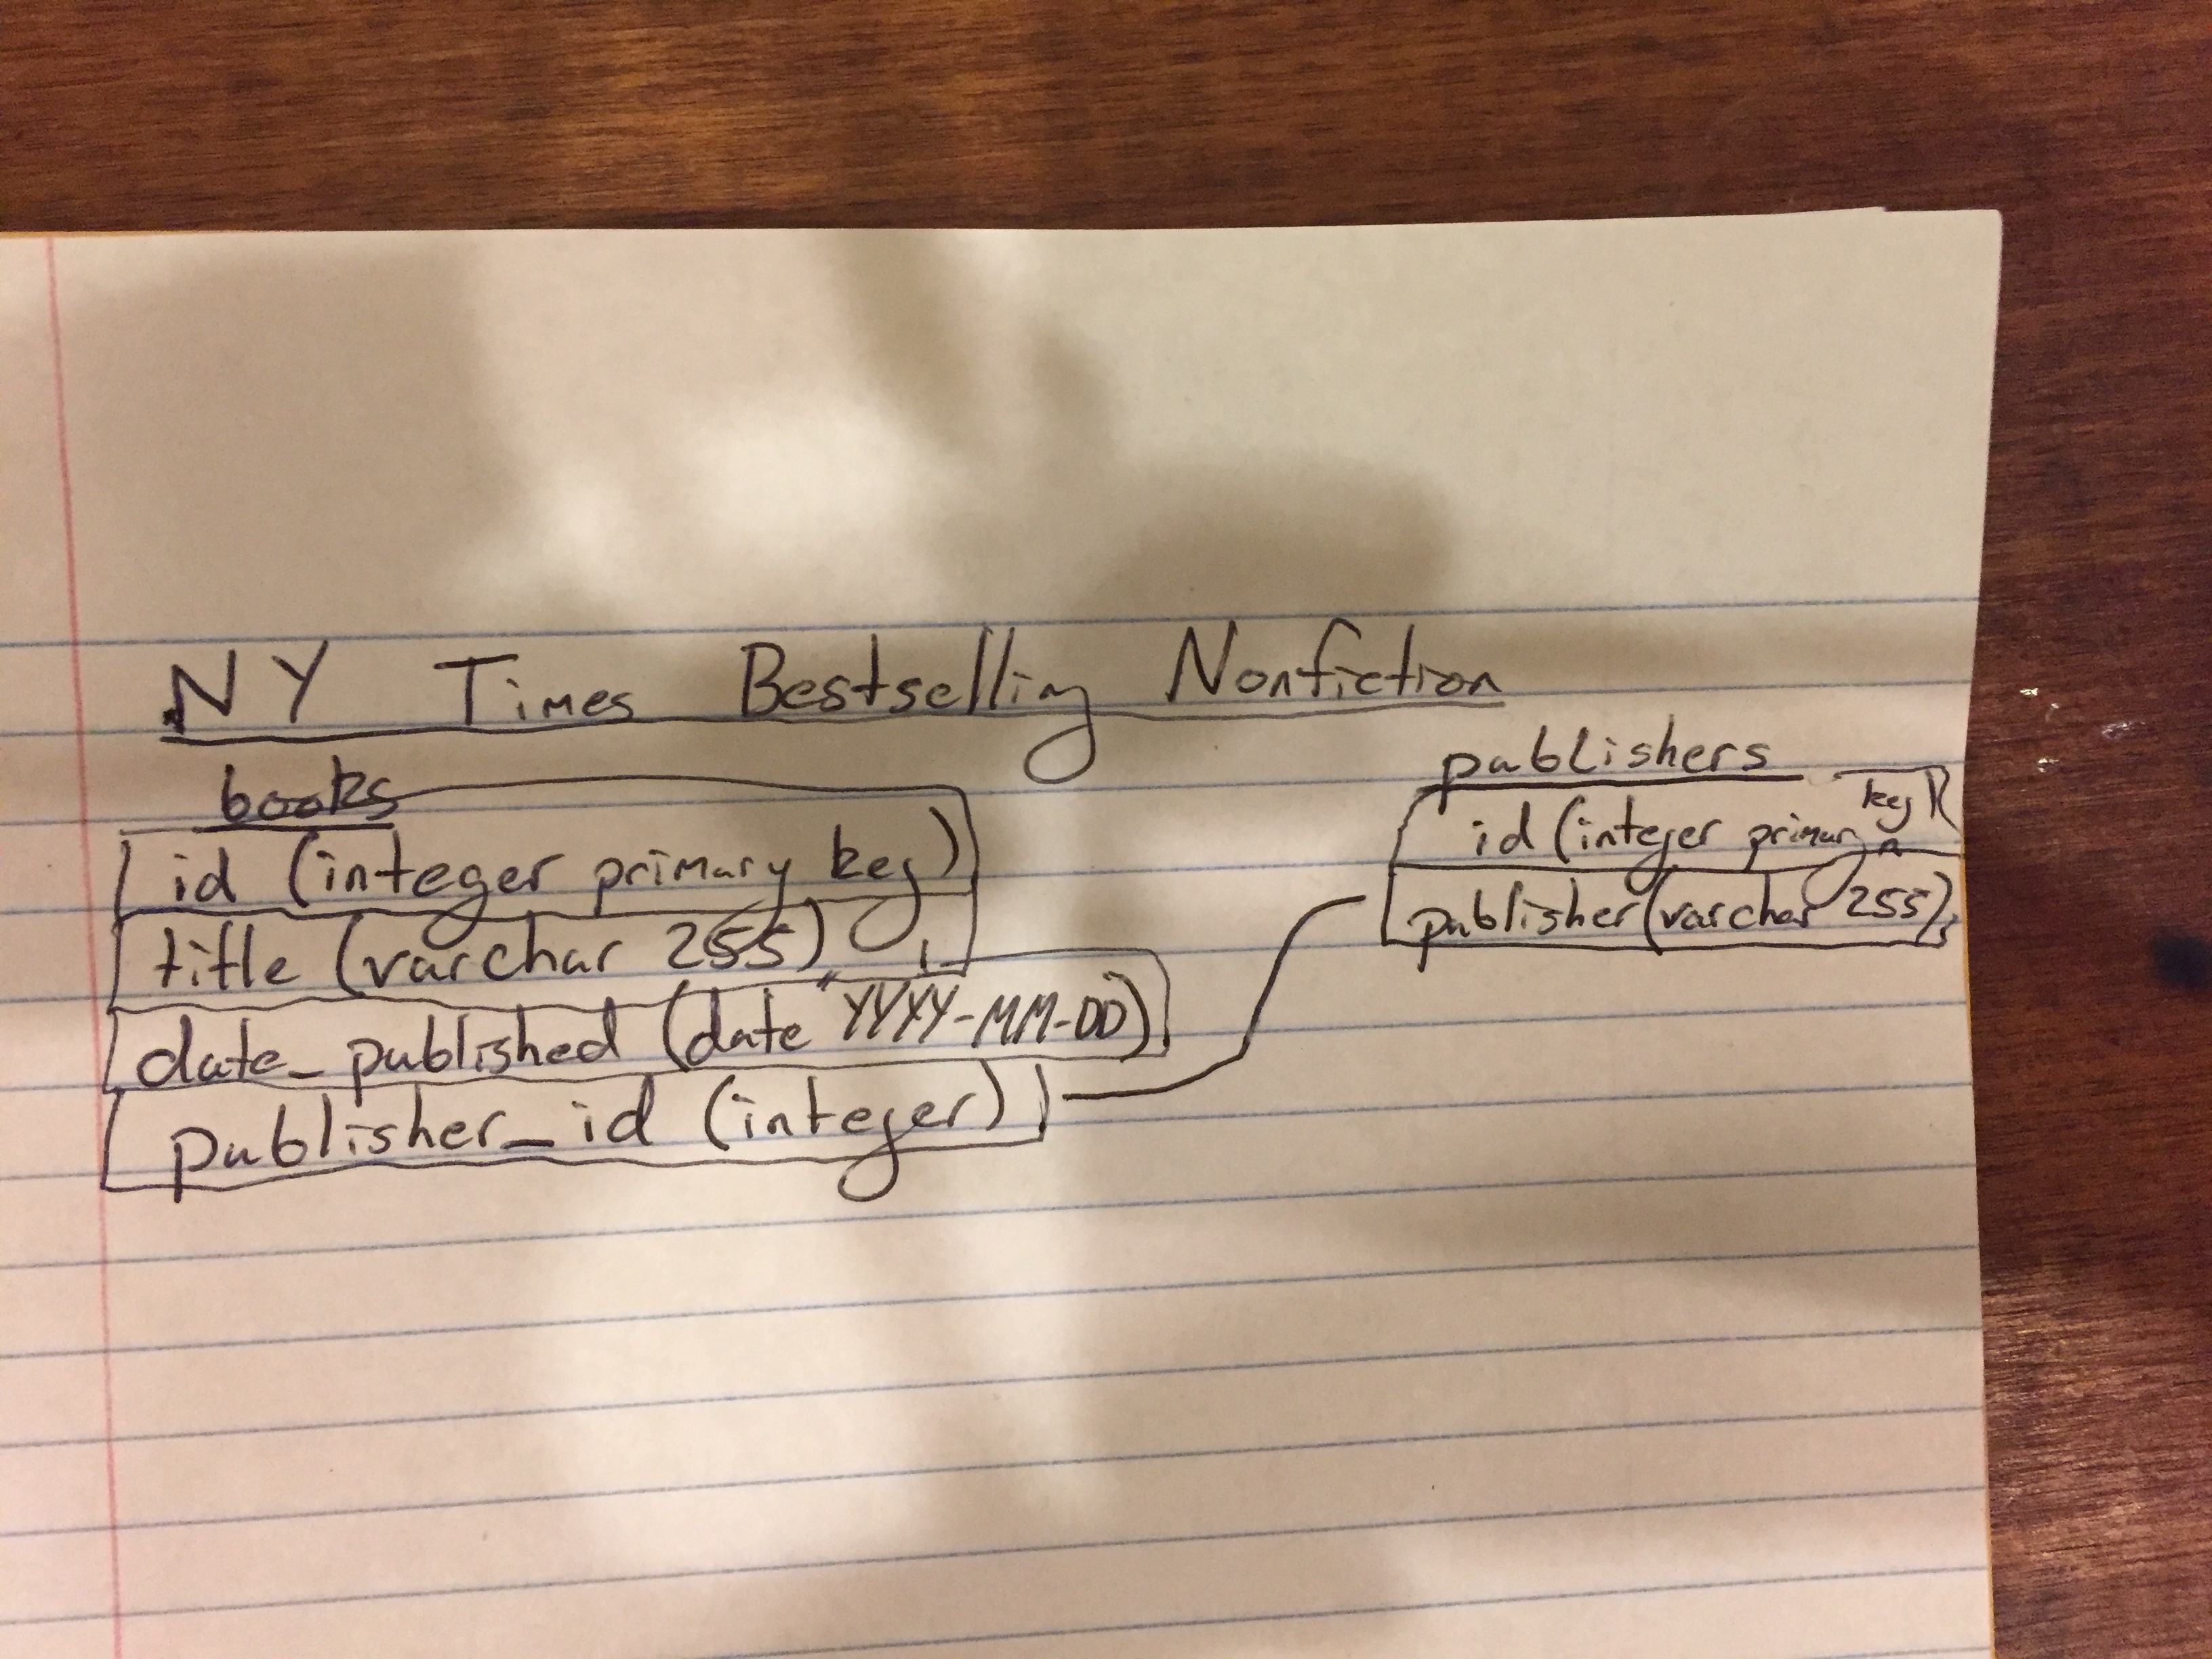 NY Times Bestselling Nonfiction
books
id (integer primary key)
title (varchar 255)
date_published (date "YYYY-MM-DD)
publisher_id (integer)
publishers
id (integer primary key)
publisher (varchar 255)